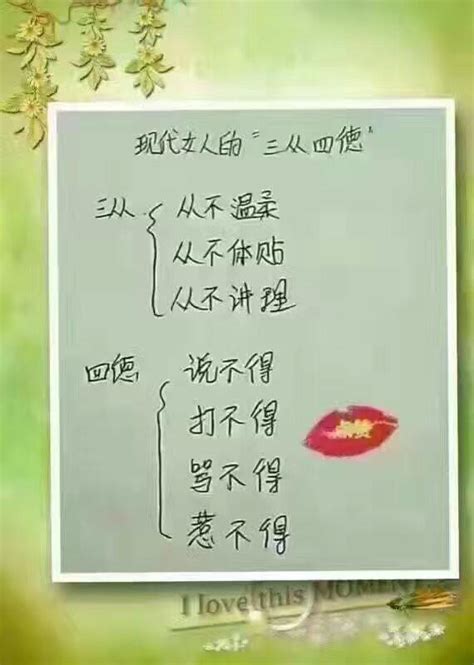 现代女人的"三从四德"
三从 从不温柔
从不体贴
从不讲理
四德 说不得
打不得
骂不得
惹不得
I love this MOMENT